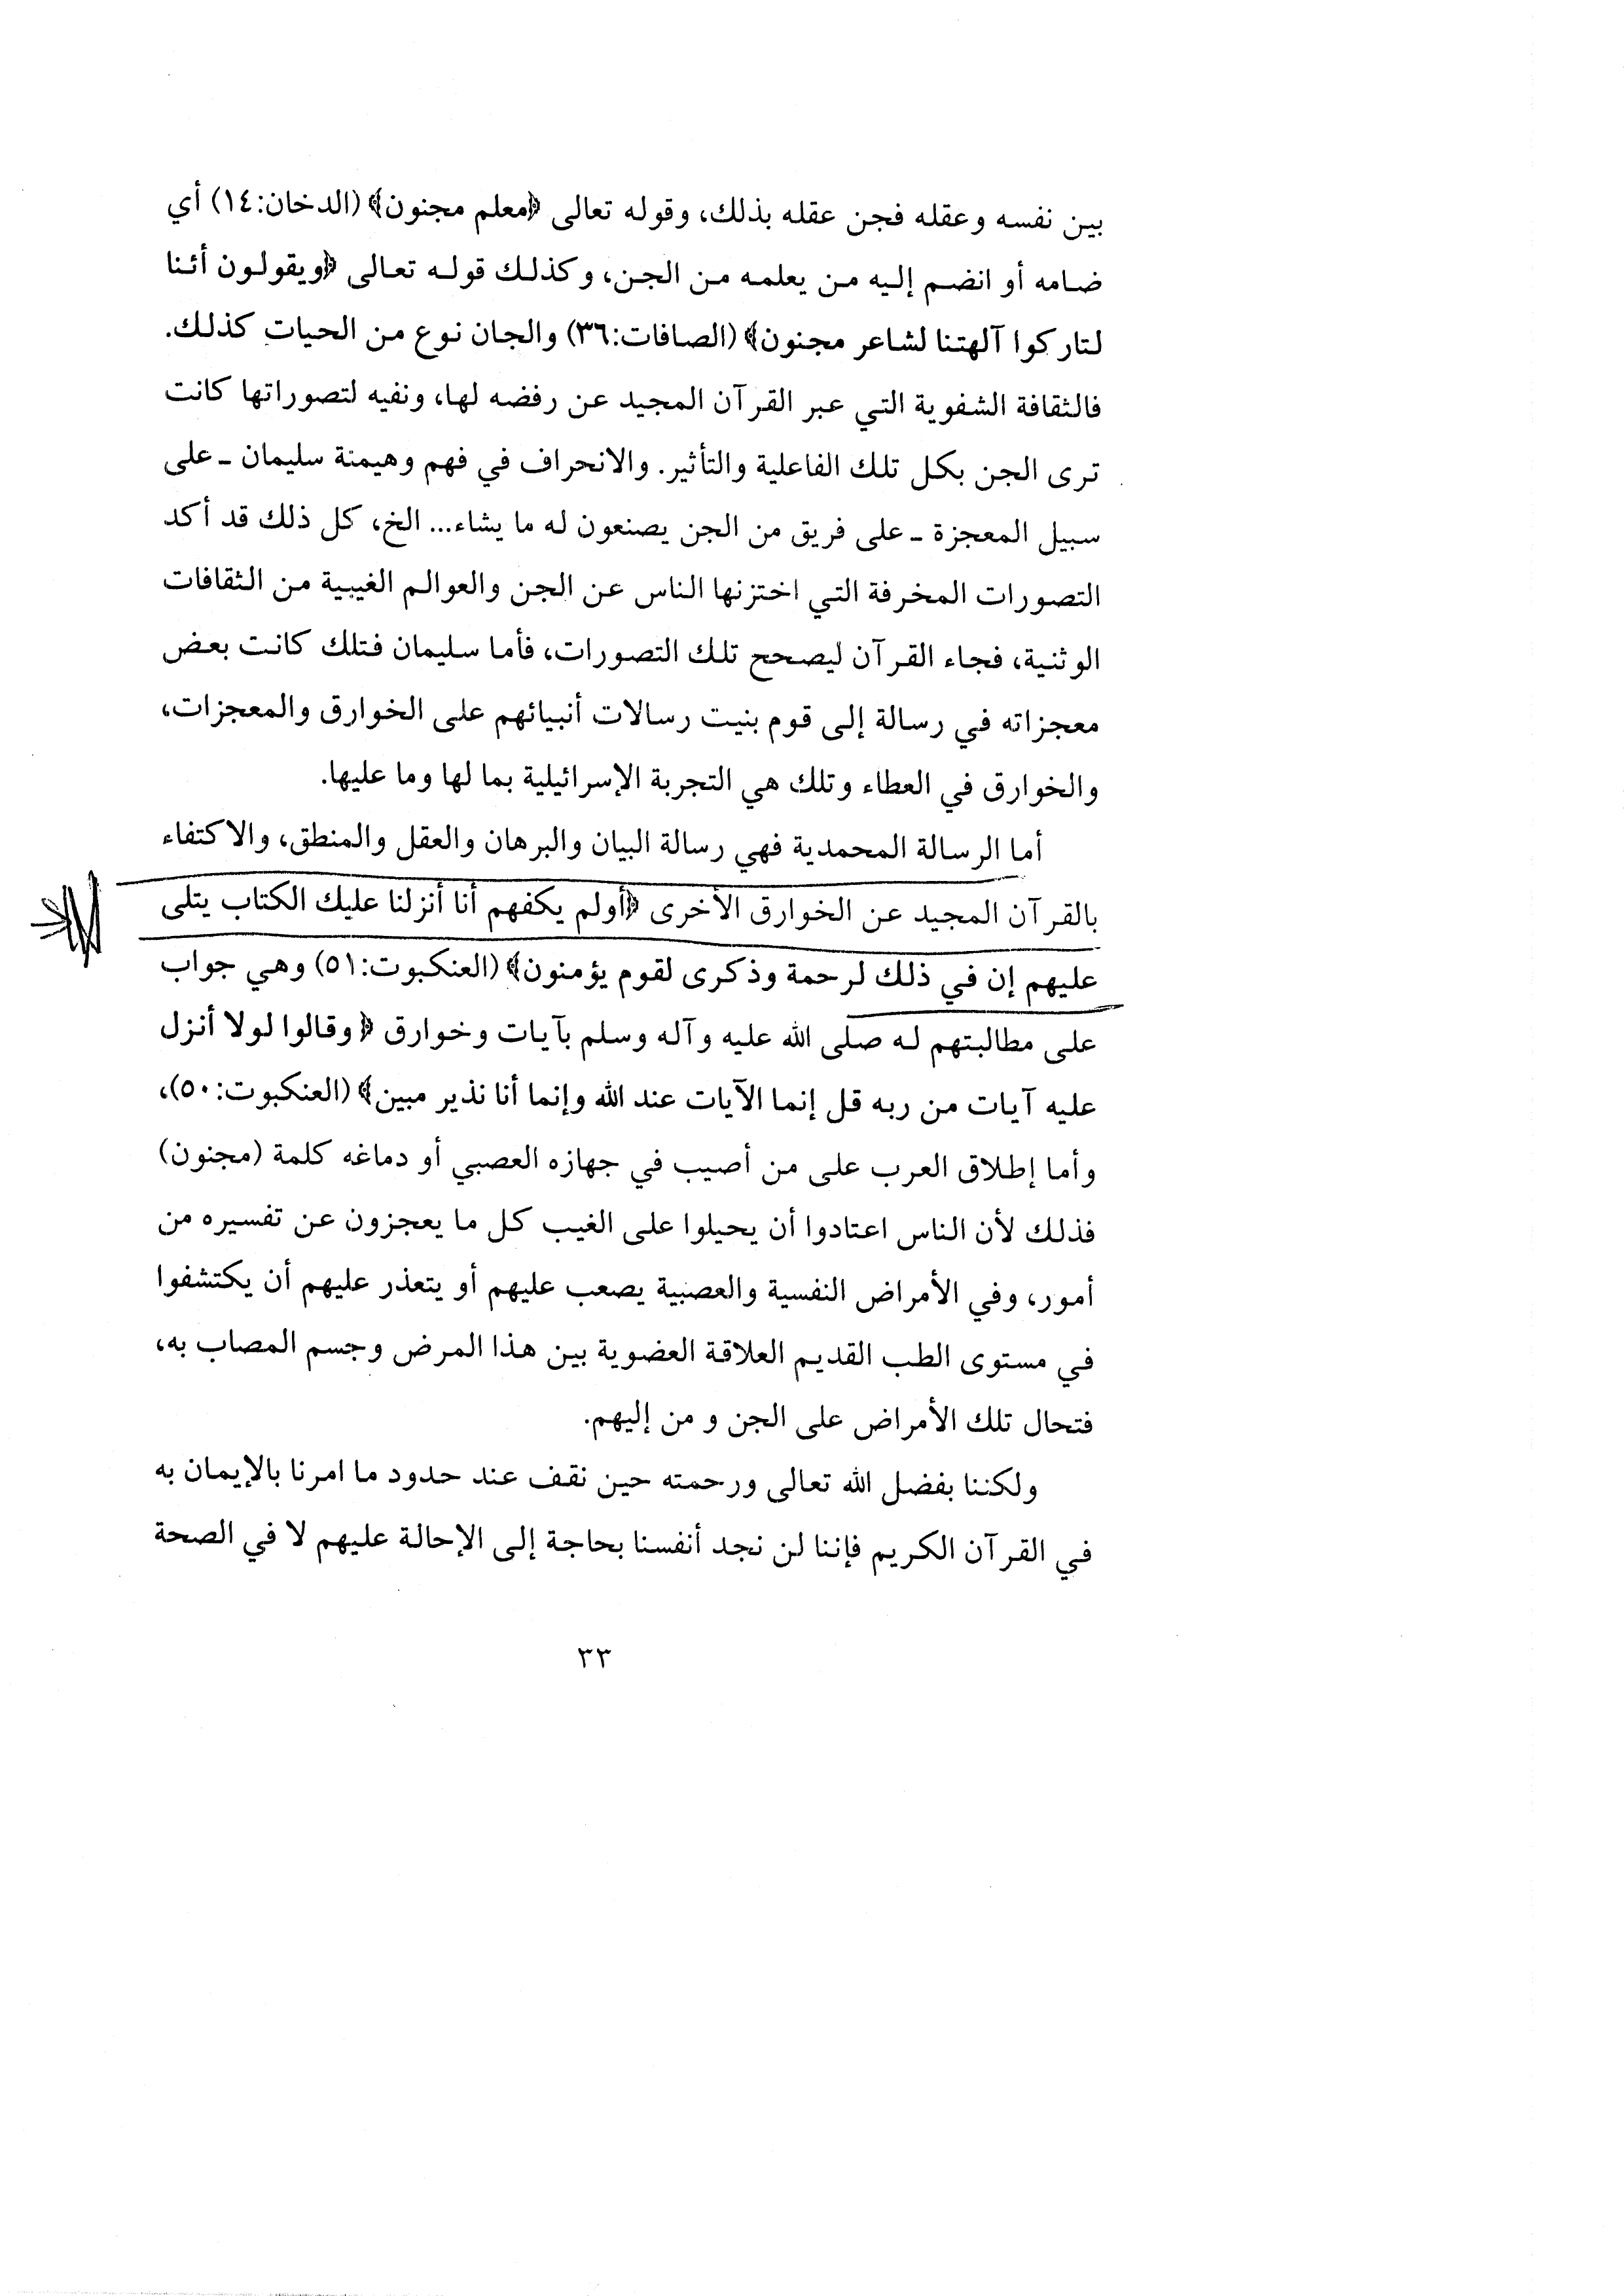 بين نفسه وعقله فجن عقله بذلك، وقوله تعالى ﴿معلم مجنون﴾ (الدخان:١٤) أي
ضامه أو انضم إليه من يعلمه من الجن، وكذلك قوله تعالى ﴿ويقولون أئنا
لتاركوا آلهتنا لشاعر مجنون﴾ (الصافات:٣٦) والجان نوع من الحيات كذلك.
فالثقافة الشفوية التي عبر القرآن المجيد عن رفضه لها، ونفيه لتصوراتها كانت
ترى الجن بكل تلك الفاعلية والتأثير. والانحراف في فهم وهيمنة سليمان ـ على
سبيل المعجزة ـ على فريق من الجن يصنعون له ما يشاء... الخ، كل ذلك قد أكد
التصورات المخرفة التي اختزنها الناس عن الجن والعوالم الغيبية من الثقافات
الوثنية، فجاء القرآن ليصحح تلك التصورات، فأما سليمان فتلك كانت بعض
معجزاته في رسالة إلى قوم بنيت رسالات أنبيائهم على الخوارق والمعجزات،
والخوارق في العطاء وتلك هي التجربة الإسرائيلية بما لها وما عليها.
أما الرسالة المحمدية فهي رسالة البيان والبرهان والعقل والمنطق، والاكتفاء
بالقرآن المجيد عن الخوارق الأخرى ﴿أولم يكفهم أنا أنزلنا عليك الكتاب يتلى
عليهم إن في ذلك لرحمة وذكرى لقوم يؤمنون﴾ (العنكبوت:٥١) وهي جواب
على مطالبتهم له صلى الله عليه وآله وسلم بآيات وخوارق ﴿وقالوا لولا أنزل
عليه آيات من ربه قل إنما الآيات عند الله وإنما أنا نذير مبين﴾ (العنكبوت:٥٠)،
وأما إطلاق العرب على من أصيب في جهازه العصبي أو دماغه كلمة (مجنون)
فذلك لأن الناس اعتادوا أن يحيلوا على الغيب كل ما يعجزون عن تفسيره من
أمور، وفي الأمراض النفسية والعصبية يصعب عليهم أو يتعذر عليهم أن يكتشفوا
في مستوى الطب القديم العلاقة العضوية بين هذا المرض وجسم المصاب به،
فتحال تلك الأمراض على الجن و من إليهم.
ولكننا بفضل الله تعالى ورحمته حين نقف عند حدود ما امرنا بالإيمان به
في القرآن الكريم فإننا لن نجد أنفسنا بحاجة إلى الإحالة عليهم لا في الصحة
٣٣